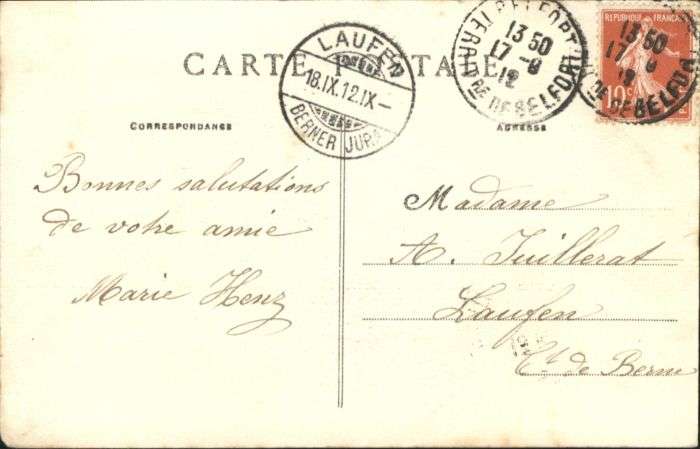 CARTE POSTALE
LAUFEN
18.IX.12.IX–
BERNER JURA
BELFORT
13 50
17 - 9
12
TERRre DE BELFORT
REPUBLIQUE FRANÇAISE
10c
13 50
17
12
re DE BELFORT
CORRESPONDANCE
ADRESSE
Bonnes salutations
de votre amie
Marie Henz
Madame
A. Juillerat
Laufen
Ct. de Berne